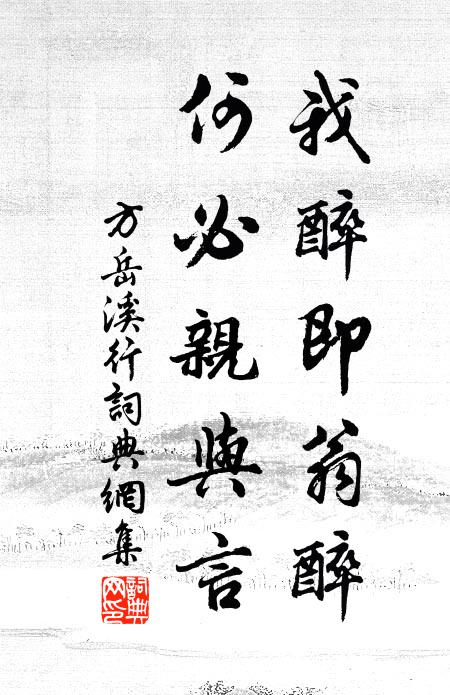 我醉即翁醉
何必親與言
方岳溪行詞典網集
詞典
网